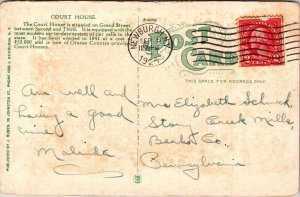 COURT HOUSE.
The Court House is situated on Grand Street,
between Second and Third. It is equipped with the
most modern sanitary system of jail cells in the
state. It was erected in 1841 at a cost of
$13,000 and is one of Orange County's principal
Court Houses.
POST
CARD
NEWBURGH
THIS SPACE FOR ADDRESS ONLY.
Are well and
having a good
time
Malinda
Mrs Elizabeth Schuck
Stony Creek Mills,
Berks Co.,
Pennsylvania
PUBLISHED BY J. RUBEN, 39 JOHNSTON ST., PHONE 1066-J, NEWBURGH, N. Y.